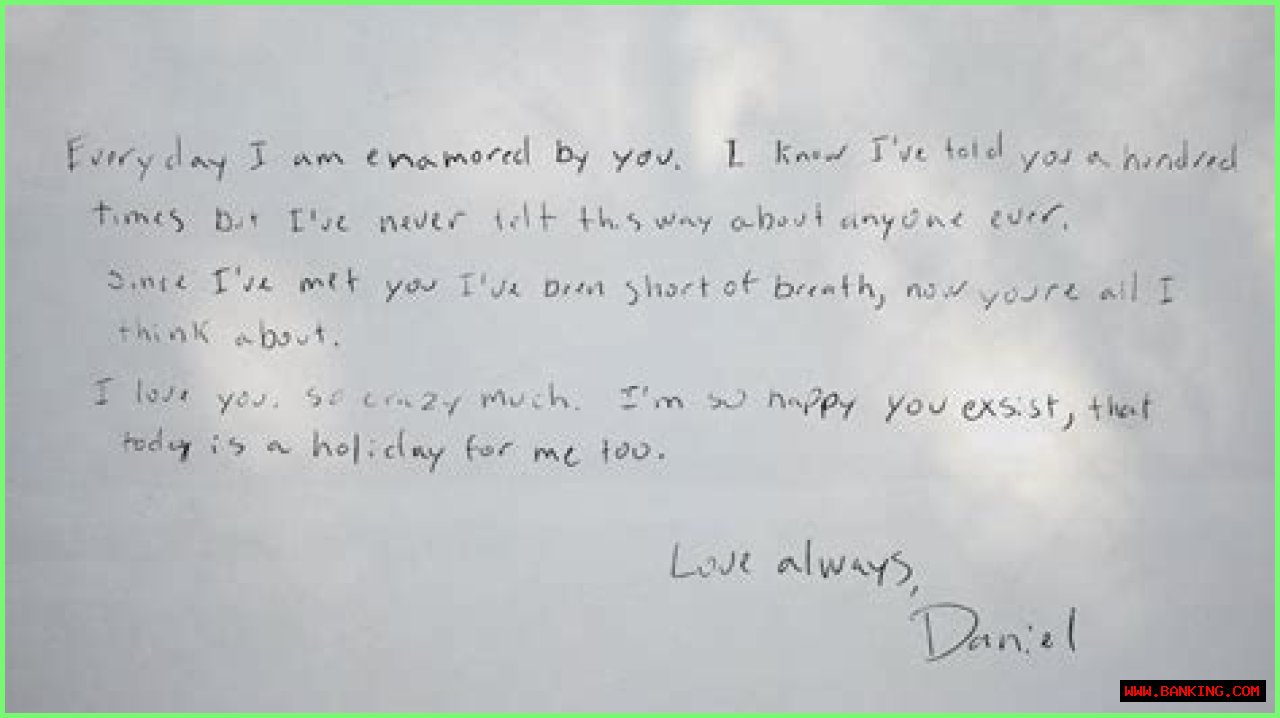 Everyday I am enamored by you. I know I've told you a hundred
times but I've never felt this way about anyone ever.
Since I've met you I've been short of breath, now youre all I
think about.
I love you. so crazy much. I'm so happy you exsist, that
today is a holiday for me too.
Love always,
Daniel
WWW.BANKING.COM